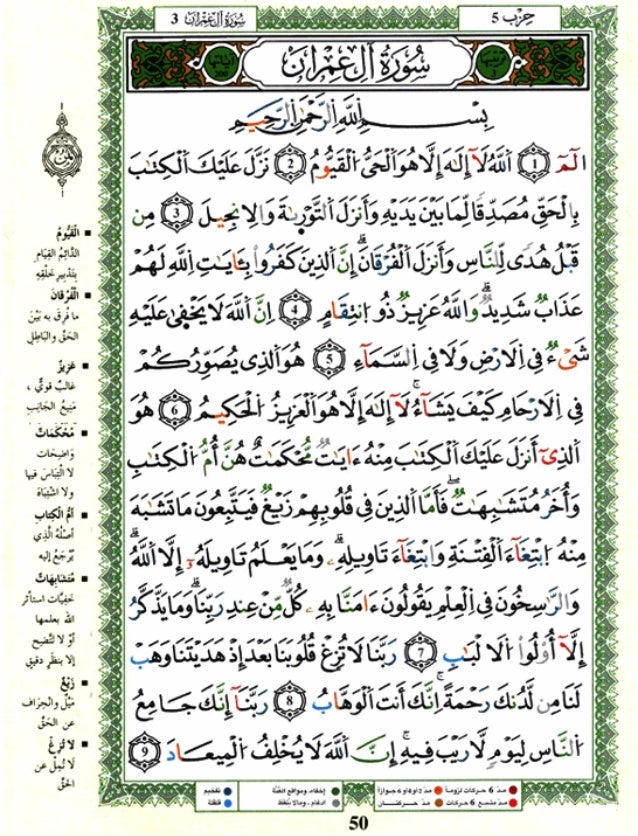 حزب 5
سُورَةُ آلِ عِمْرَان 3
ترتيبها 3
سُورَةُ آلِ عِمْرَانَ
آياتها 200
بِسْمِ اللَّهِ الرَّحْمَٰنِ الرَّحِيمِ
أَلَٓمِّٓ 1 اَللَّهُ لَآ إِلَٰهَ إِلَّا هُوَ اَلْحَيُّ اُلْقَيُّومُ 2 نَزَّلَ عَلَيْكَ اَلْكِتَٰبَ
بِالْحَقِّ مُصَدِّقاً لِّمَا بَيْنَ يَدَيْهِ وَأَنزَلَ اَلتَّوْرَىٰةَ وَالِانجِيلَ 3 مِن
قَبْلُ هُدىً لِّلنَّاسِ وَأَنزَلَ اَلْفُرْقَانَ إِنَّ اَلذِينَ كَفَرُواْ بِـَٔايَٰتِ اِللَّهِ لَهُمْ
عَذَابٌ شَدِيدٌ وَاللَّهُ عَزِيزٌ ذُو اُنتِقَامٍ 4 اِنَّ اَللَّهَ لَا يَخْفَىٰ عَلَيْهِ
شَےْءٌ فِے اِلَارْضِ وَلَا فِے اِلسَّمَآءِ 5 هُوَ اَلذِے يُصَوِّرُكُمْ
فِے اِلَارْحَامِ كَيْفَ يَشَآءُ لَآ إِلَٰهَ إِلَّا هُوَ اَلْعَزِيزُ اُلْحَكِيمُ 6 هُوَ
اَلذِےٓ أَنزَلَ عَلَيْكَ اَلْكِتَٰبَ مِنْهُ ءَايَٰتٌ مُّحْكَمَٰتٌ هُنَّ أُمُّ اُلْكِتَٰبِ
وَأُخَرُ مُتَشَٰبِهَٰتٌ فَأَمَّا اَلذِينَ فِے قُلُوبِهِمْ زَيْغٌ فَيَتَّبِعُونَ مَا تَشَٰبَهَ
مِنْهُ اُبْتِغَآءَ اَلْفِتْنَةِ وَابْتِغَآءَ تَاوِيلِهِۦ وَمَا يَعْلَمُ تَاوِيلَهُۥٓ إِلَّا اَللَّهُ
وَالرَّٰسِخُونَ فِے اِلْعِلْمِ يَقُولُونَ ءَامَنَّا بِهِۦ كُلٌّ مِّنْ عِندِ رَبِّنَا وَمَا يَذَّكَّرُ
إِلَّآ أُوْلُواْ اُلَالْبَٰبِ 7 رَبَّنَا لَا تُزِغْ قُلُوبَنَا بَعْدَ إِذْ هَدَيْتَنَا وَهَبْ
لَنَا مِن لَّدُنكَ رَحْمَةً اِنَّكَ أَنتَ اَلْوَهَّابُ 8 رَبَّنَآ إِنَّكَ جَامِعُ
اُلنَّاسِ لِيَوْمٍ لَّا رَيْبَ فِيهِ إِنَّ اَللَّهَ لَا يُخْلِفُ اُلْمِيعَادَ 9
ثمن
■ الْقَيُّومُ
الدَّائِمُ الْقِيَامِ
بِتَدْبِيرِ خَلْقِهِ
■ الْفُرْقَانَ
ما فُرِقَ به بَيْنَ
الحَقِّ والباطِلِ
■ عَزِيزٌ
غالبٌ قَوِيٌّ ،
مَنِيعُ الجَانِبِ
■ مُحْكَمَاتٌ
وَاضِحَات
لا الْتِبَاسَ فيها
ولا اشْتِبَاهَ
■ أُمُّ الْكِتَابِ
أصْلُهُ الَّذِي
يُرْجَعُ إليه
■ مُتَشَابِهَاتٌ
خَفِيَّات استأثر
الله بعلمها
أوْ لا تَتَّضِحُ
إلا بنظرٍ دقيقٍ
■ زَيْغٌ
مَيْلٌ وانْحِرَاف
عن الحَقِّ
■ لا تُزِغْ
لا تُمِلْ عن
الحَقِّ
مدّ 6 حركات لزوماً
مدّ 2 أو 4 أو 6 جوازاً
إخفاء، ومواقع الغُنَّة
تفخيم
مدّ مشبع 6 حركات
مدّ حركتان
إدغام، ومالا يُلفَظ
قلقلة
50